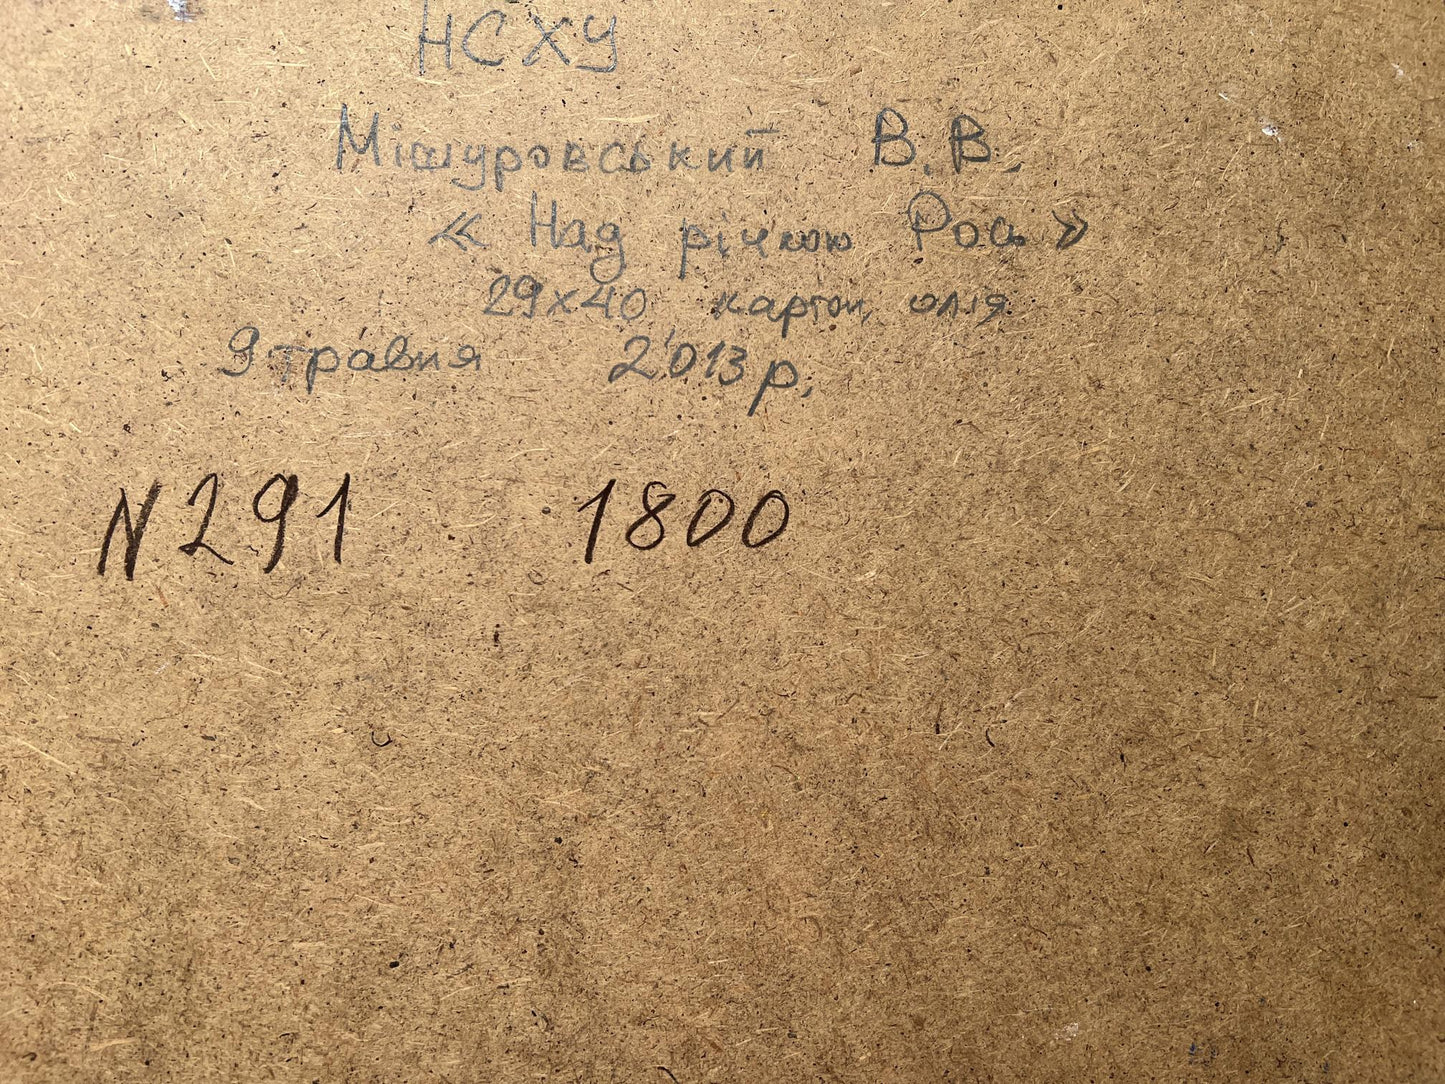 НСХУ
Мішуровський В.В.
« Над річкою Рось »
29х40 картон, олія
9 травня 2013 р.
N 291 1800